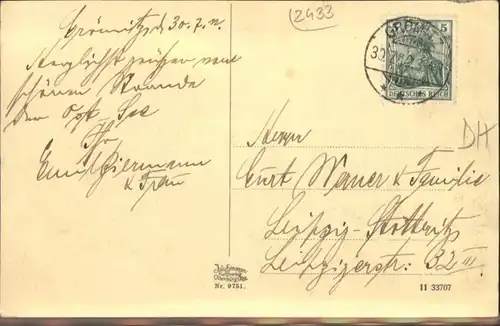 Grömitz, d 30. 7. 11.
Herzlichst grüßen vom
schönen Strande
der Ost-See
Ihr
Emil Biermann
& Frau
2433
5
DEUTSCHES REICH
DH
Herrn
Curt Werner & Familie
Leipzig-Stötteritz
Leipzigerstr. 32 III
Nr. 9751.
11 33707